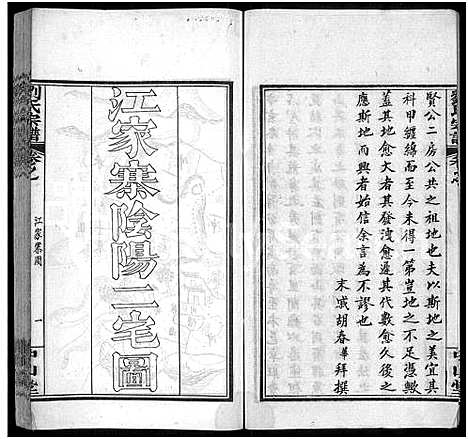 劉氏宗譜
賢公二房公共之祖地也夫以斯地之美宜其
科甲纏綿而至今未有一第豈地之不足憑歟
蓋其地愈大者其發洩愈遲其代數愈久逢
應斯地而興者始信余言為不謬也
末戚胡春華拜撰
江家寨陰陽二宅圖
劉氏宗譜
江家寨圖
一
中山堂